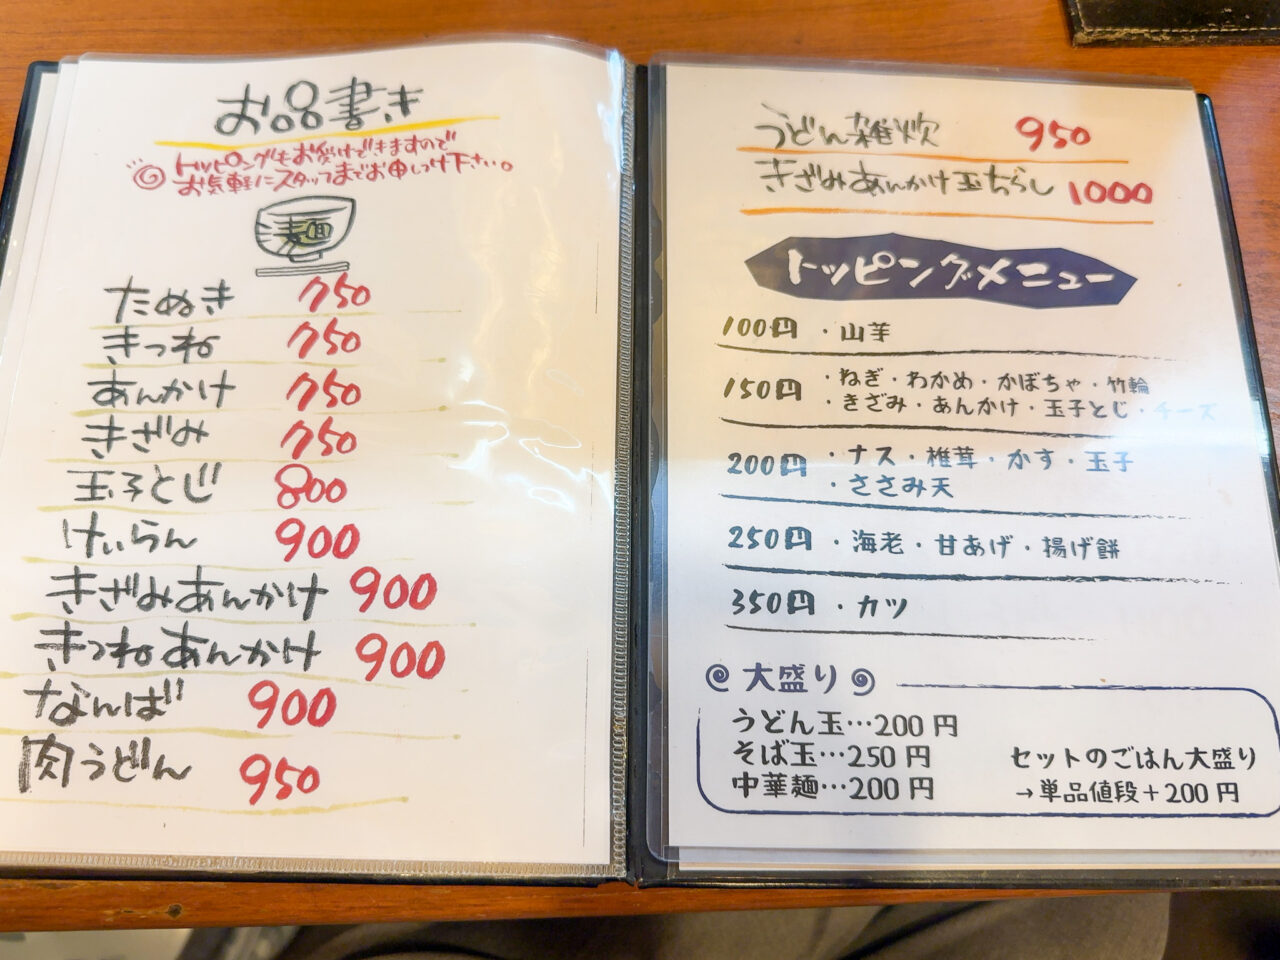 お品書き
トッピングもお受けできますので
お気軽にスタッフまでお申しつけ下さい。
麺
たぬき 750
きつね 750
あんかけ 750
きざみ 750
玉子とじ 800
けいらん 900
きざみあんかけ 900
きつねあんかけ 900
なんば 900
肉うどん 950
うどん雑炊 950
きざみあんかけ玉ちらし 1000
トッピングメニュー
100円 ・山芋
150円 ・ねぎ・わかめ・かぼちゃ・竹輪
・きざみ・あんかけ・玉子とじ・チーズ
200円 ・ナス・椎茸・かす・玉子
・ささみ天
250円 ・海老・甘あげ・揚げ餅
350円 ・カツ
大盛り
うどん玉…200円
そば玉…250円
中華麺…200円
セットのごはん大盛り
→単品値段+200円